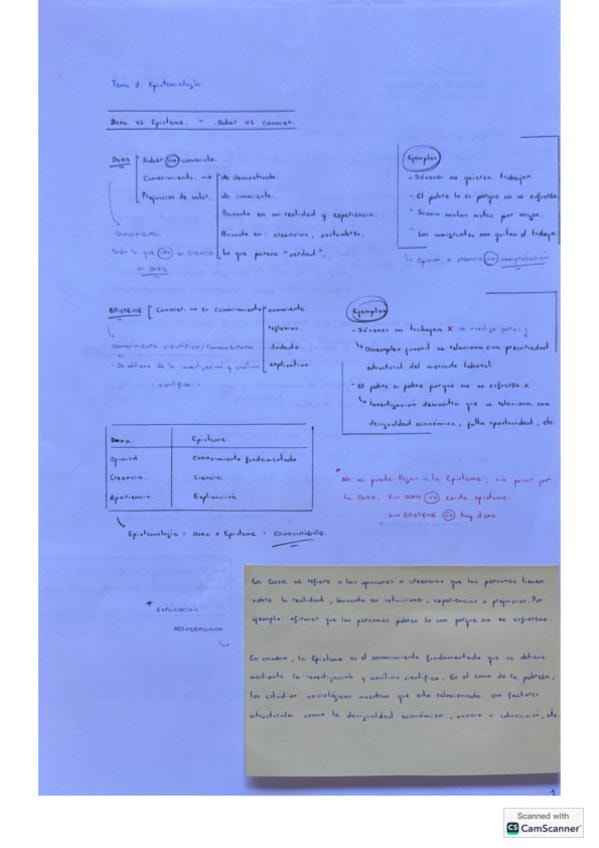 Tema 1. Epistemología.
Doxa vs Episteme. - Saber vs conocer.
DOXA
Saber no consciente.
Conocimiento. → no demostrado.
Prejuicios de valor. no consciente.
Basada en mi realidad y experiencia.
Basada en: creencias, costumbres.
Lo que parece "verdad".
Todo lo que no es ciencia
es DOXA
Ejemplos
- Jóvenes no quieren trabajar.
- El pobre lo es porque no se esfuerza.
- Sacan malas notas por vagos.
- Los inmigrantes nos quitan el trabajo.
Opinión o creencia no comprobación
EPISTEME
Conocer. → es conocimiento consciente.
reflexivo
dudado.
explicativo.
conocimiento científico/fundamentado
- Se obtiene de la investigación y análisis
científico. -
Ejemplos
- Jóvenes no trabajan x se investiga
Desempleo juvenil se relaciona con precariedad
estructural del mercado laboral.
- El pobre es pobre porque no se esfuerza. x
Investigación demuestra que se relaciona con
desigualdad económica, falta oportunidad, etc.
Doxa Episteme.
Opinión Conocimiento fundamentado
Creencia. Ciencia.
Apariencia. Explicación.
Epistemología = Doxa + Episteme = Conocimiento.
* No se puede llegar a la Episteme, sin pasar por
la DOXA. Sin DOXA no existe episteme.
SIN EPISTEME no hay doxa.
* EXPLICACIÓN
La Doxa se refiere a las opiniones o creencias que las personas tienen
sobre la realidad, basada en intuiciones, experiencias o prejuicios. Por
ejemplo: afirmar que las personas pobres lo son porque no se esfuerzan.
En cambio, la Episteme es el conocimiento fundamentado que se obtiene
mediante la investigación y análisis científico. En el caso de la pobreza,
los estudios sociológicos muestran que está relacionada con factores
estructurales como la desigualdad económica, acceso a educación, etc.
1
Scanned with
CS CamScanner